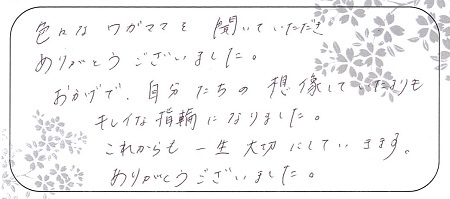 色々なワガママを聞いていただき
ありがとうございました。
おかげで、自分たちの想像していたよりも
キレイな指輪になりました。
これからも一生大切にしていきます。
ありがとうございました。